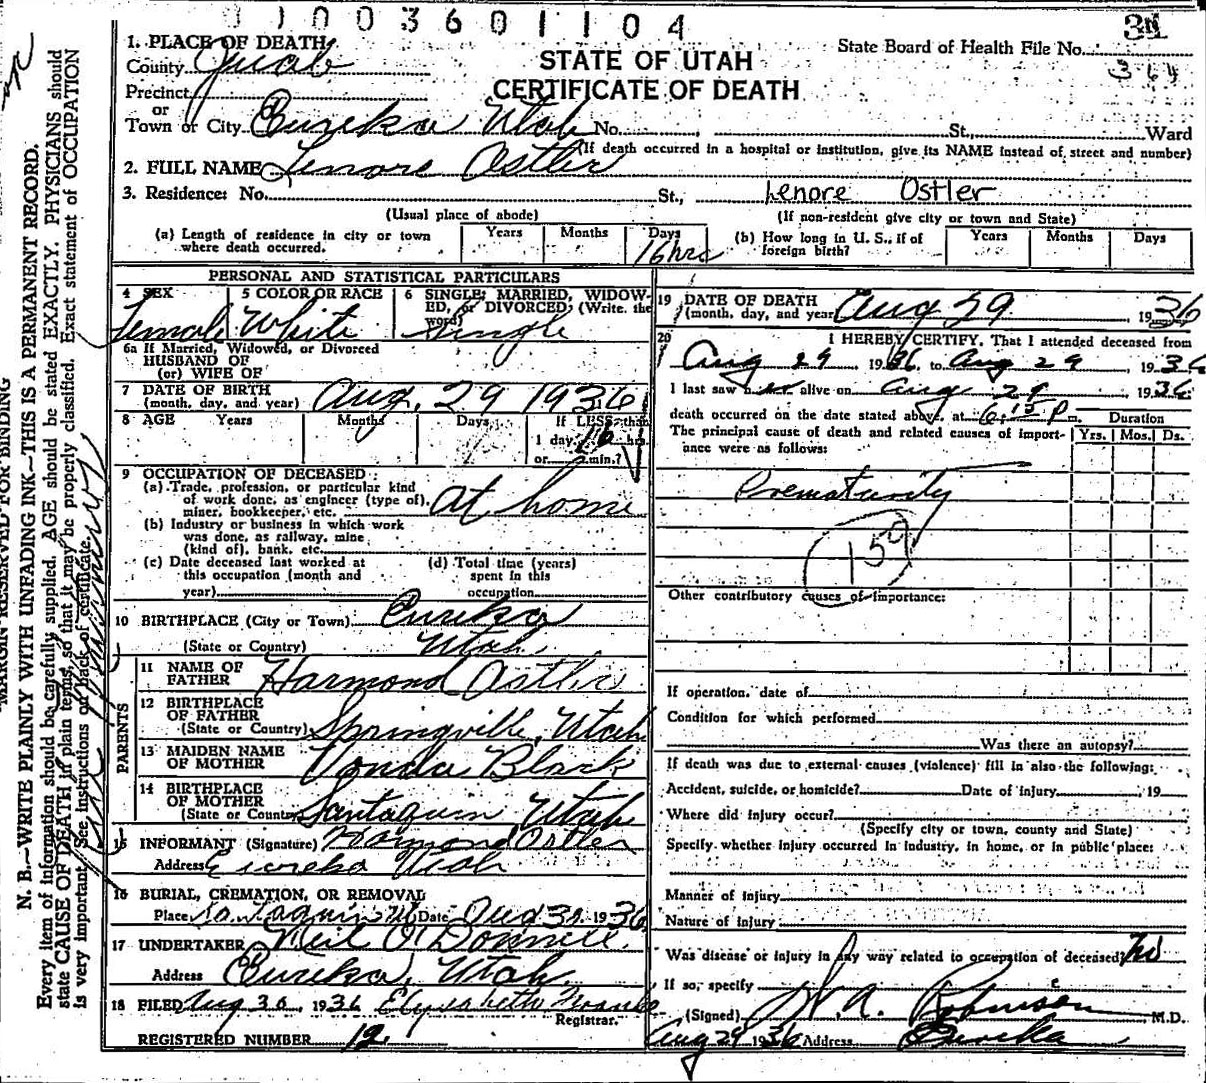 0 1 0 0 3 6 0 1 1 0 4
STATE OF UTAH
CERTIFICATE OF DEATH
State Board of Health File No.
364
1. PLACE OF DEATH
County Juab
Precinct
or
Town or City Eureka Utah No. , St., Ward
(If death occurred in a hospital or institution, give its NAME instead of street and number)
2. FULL NAME Lenore Ostler
3. Residence: No. St., Lenore Ostler
(Usual place of abode) (If non-resident give city or town and State)
(a) Length of residence in city or town where death occurred. Years Months Days 16 hrs
(b) How long in U. S., if of foreign birth? Years Months Days
PERSONAL AND STATISTICAL PARTICULARS
4 SEX Female
5 COLOR OR RACE White
6 SINGLE, MARRIED, WIDOWED, or DIVORCED, (Write the word) Single
6a If Married, Widowed, or Divorced
HUSBAND OF
(or) WIFE OF
7 DATE OF BIRTH
(month, day, and year) Aug. 29 1936
8 AGE Years Months Days If LESS than
1 day, 16 hrs.
or min.?
9 OCCUPATION OF DECEASED
(a) Trade, profession, or particular kind
of work done, as engineer (type of),
miner, bookkeeper, etc. At home
(b) Industry or business in which work
was done, as railway, mine
(kind of), bank, etc.
(c) Date deceased last worked at
this occupation (month and
year)
(d) Total time (years)
spent in this
occupation
10 BIRTHPLACE (City or Town) Eureka
(State or Country) Utah
PARENTS
11 NAME OF
FATHER Harmond Ostler
12 BIRTHPLACE
OF FATHER
(State or Country) Springville, Utah
13 MAIDEN NAME
OF MOTHER Vonda Black
14 BIRTHPLACE
OF MOTHER
(State or Country) Santaquin Utah
15 INFORMANT (Signature) Harmond Ostler
Address Eureka Utah
16 BURIAL, CREMATION, OR REMOVAL
Place Santaquin Ut Date Aug 30, 1936
17 UNDERTAKER Neil O'Donnell
Address Eureka, Utah.
18 FILED Aug 30, 1936 Elizabeth
Registrar.
REGISTERED NUMBER 12
19 DATE OF DEATH
(month, day, and year Aug 29 1936
20 I HEREBY CERTIFY, That I attended deceased from
Aug 29 1936, to Aug 29, 1936
I last saw h er alive on Aug 29, 1936
death occurred on the date stated above, at 6:15 P m. Duration
The principal cause of death and related causes of importance were as follows: Yrs. Mos. Ds.
Prematurity
159
Other contributory causes of importance:
If operation, date of
Condition for which performed
Was there an autopsy?
If death was due to external causes (violence) fill in also the following:
Accident, suicide, or homicide? Date of injury , 19
Where did injury occur?
(Specify city or town, county and State)
Specify whether injury occurred in industry, in home, or in public place:
Manner of injury
Nature of injury
Was disease or injury in any way related to occupation of deceased? No
If so, specify
(Signed) Robinson, M.D.
Aug 29 1936 Address Eureka
MARGIN RESERVED FOR BINDING
N. B.—WRITE PLAINLY WITH UNFADING INK—THIS IS A PERMANENT RECORD.
Every item of information should be carefully supplied. AGE should be stated EXACTLY. PHYSICIANS should
state CAUSE OF DEATH in plain terms, so that it may be properly classified. Exact statement of OCCUPATION
is very important. See instructions on back of certificate.